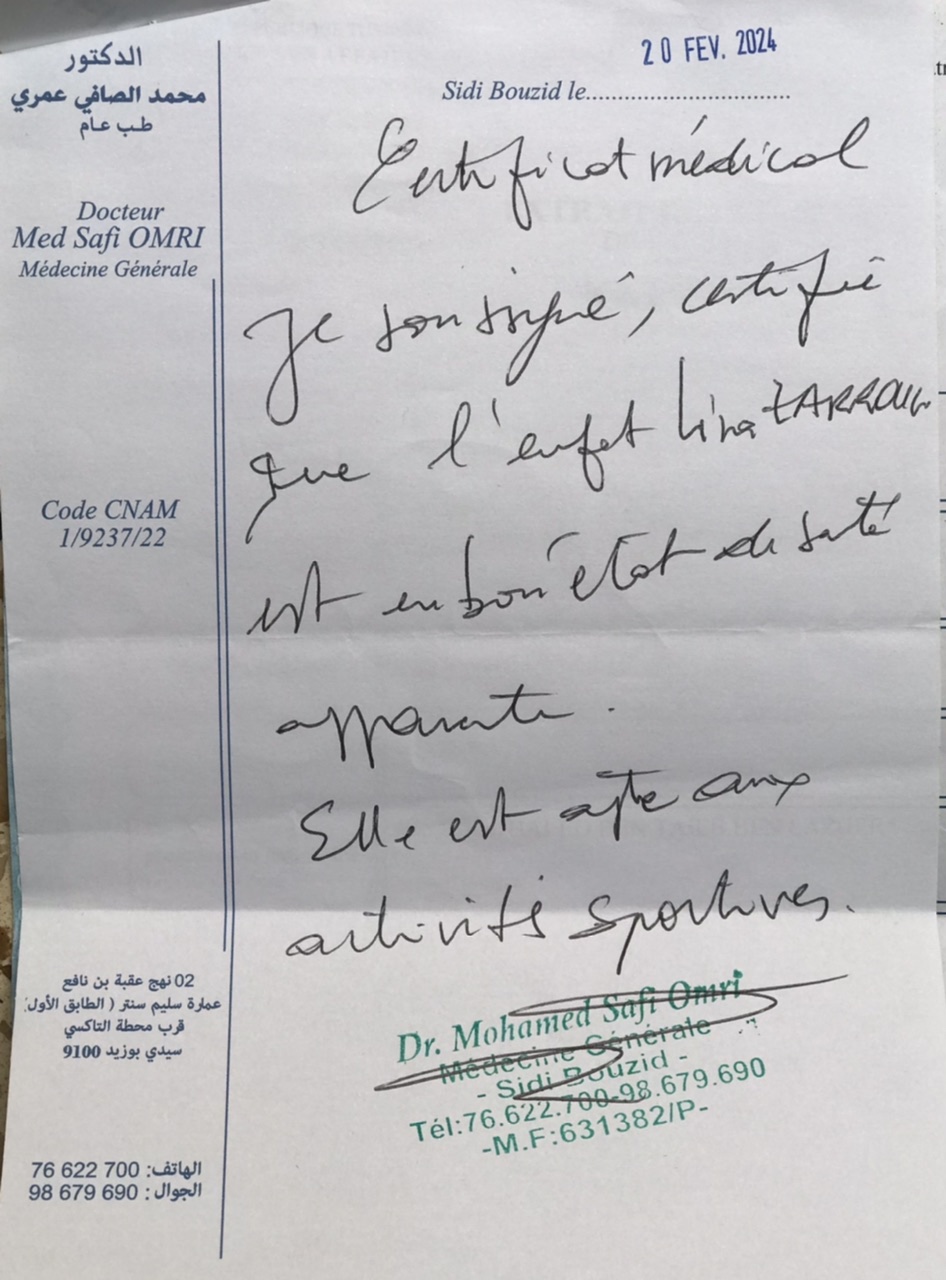 الدكتور
محمد الصافي عمري
طب عام
Docteur
Med Safi OMRI
Médecine Générale
Code CNAM
1/9237/22
02 نهج عقبة بن نافع
عمارة سليم سنتر ( الطابق الأول)
قرب محطة التاكسي
سيدي بوزيد 9100
الهاتف: 76 622 700
الجوال : 98 679 690
20 FEV. 2024
Sidi Bouzid le..............................
Certificat médical
Je soussigné, certifie
que l'enfet Lina
est en bon état de saté
apparente.
Elle est apte aux
activités sportives.
Dr. Mohamed Safi Omri
Médecine Générale
- Sidi Bouzid -
Tél:76.622.700-98.679.690
-M.F:631382/P-